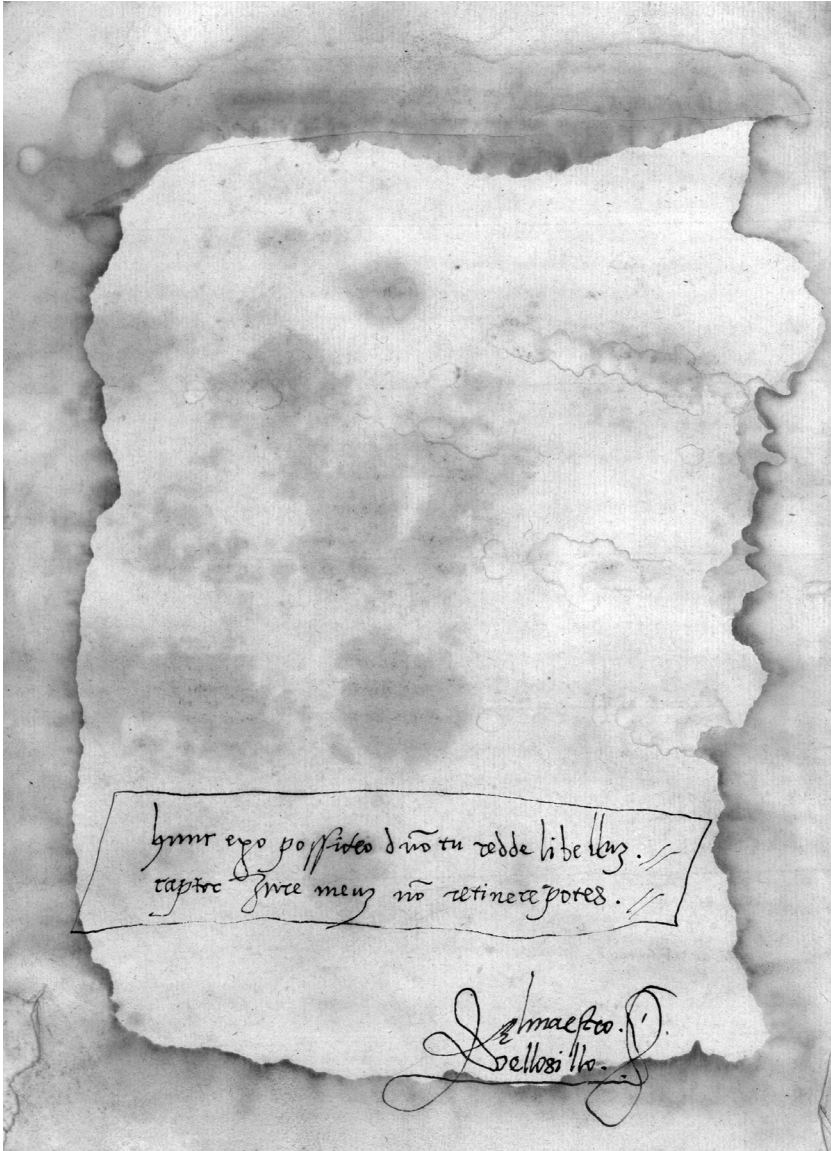 hunc ego possideo dnō tu redde libelluz. //
raptor Jure meuz nō retinere potes. //
El maestro.
vellosillo.